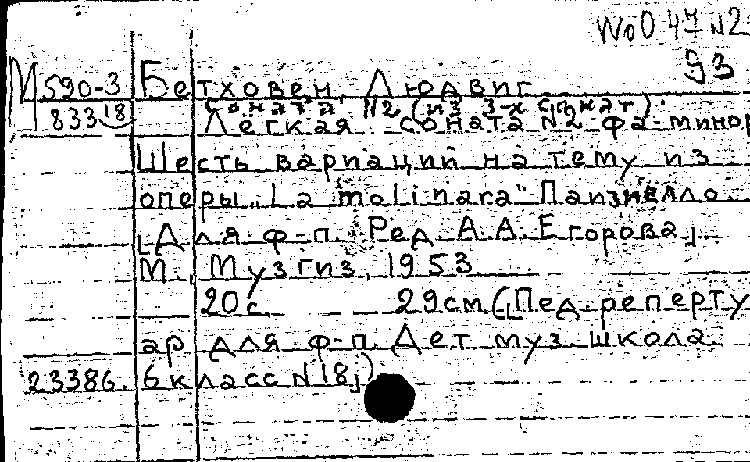 WoO 47 N2
93
М 590-3 Бетховен, Людвиг
833 18 Соната N2 (из 3-х сонат)
Легкая соната N2 фа-минор
Шесть вариаций на тему из
оперы „La molinara" Паизиелло.
[Для ф-п. Ред. А.А. Егорова].
М., Музгиз, 1953
20с. 29см. ([Пед. реперту
ар для ф-п. Дет. муз. школа.
23386. 6 класс N 18])